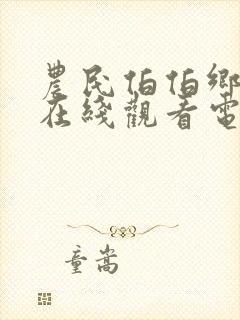 農民伯伯鄉
在綫觀看電
童嵩